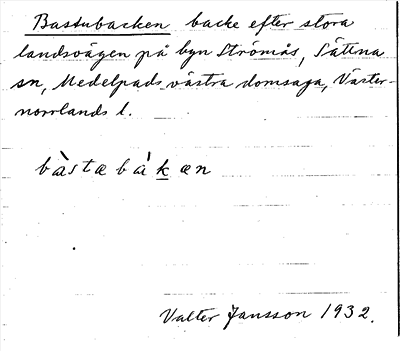 Bastubacken backe efter stora
landsvägen på byn Strömås, Sättna
sn, Medelpads västra domsaga, Väster-
norrlands l.
bàstæbákæn
Valter Jansson 1932.